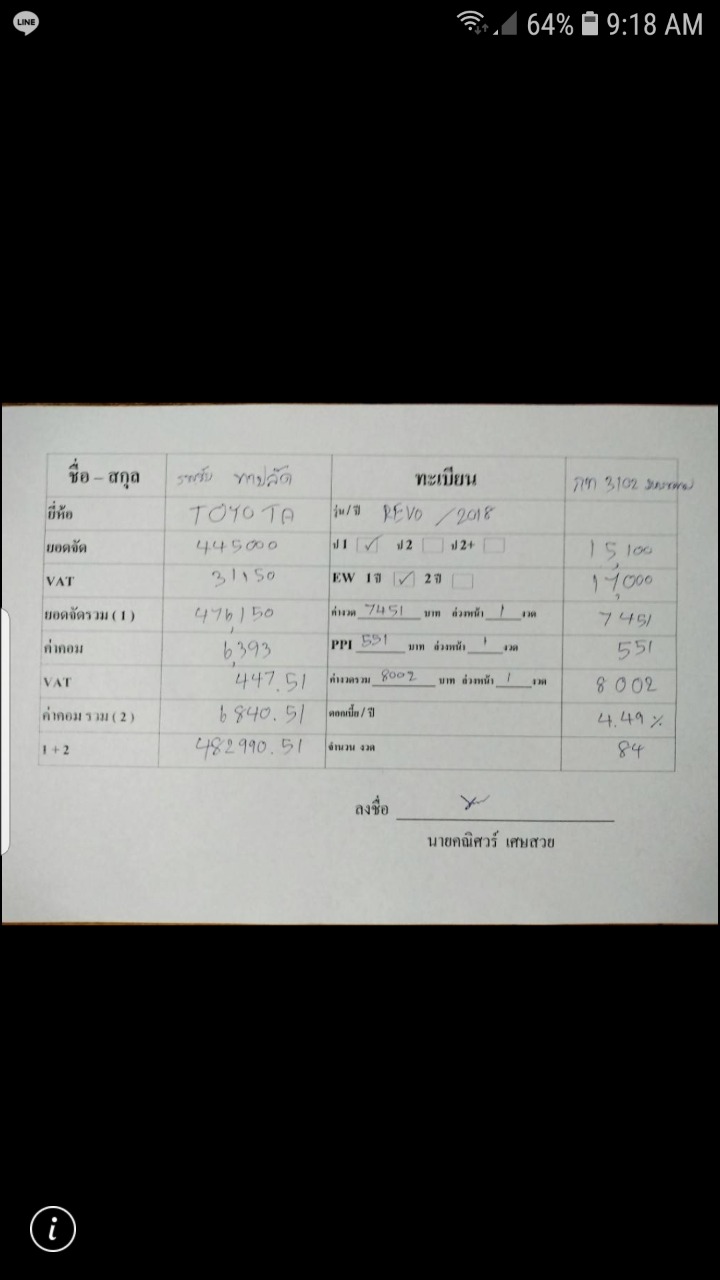 LINE 64% 9:18 AM
ชื่อ – สกุล ทะเบียน 3102
ยี่ห้อ TOYOTA รุ่น/ปี REVO /2018
ยอดจัด 445000 ป1 ✓ ป2 ป2+ 15,100
VAT 31150 EW 1ปี ✓ 2ปี 17,000
ยอดจัดรวม (1) 476,150 ค่างวด 7451 บาท ล่วงหน้า 1 งวด 7451
ค่าคอม 6,393 PPI 551 บาท ล่วงหน้า 1 งวด 551
VAT 447.51 ค่างวดรวม 8002 บาท ล่วงหน้า 1 งวด 8002
ค่าคอม รวม (2) 6840.51 ดอกเบี้ย / ปี 4.49 %
1 + 2 482990.51 จำนวน งวด 84
ลงชื่อ
นายคณิศวร์ เศษสวย